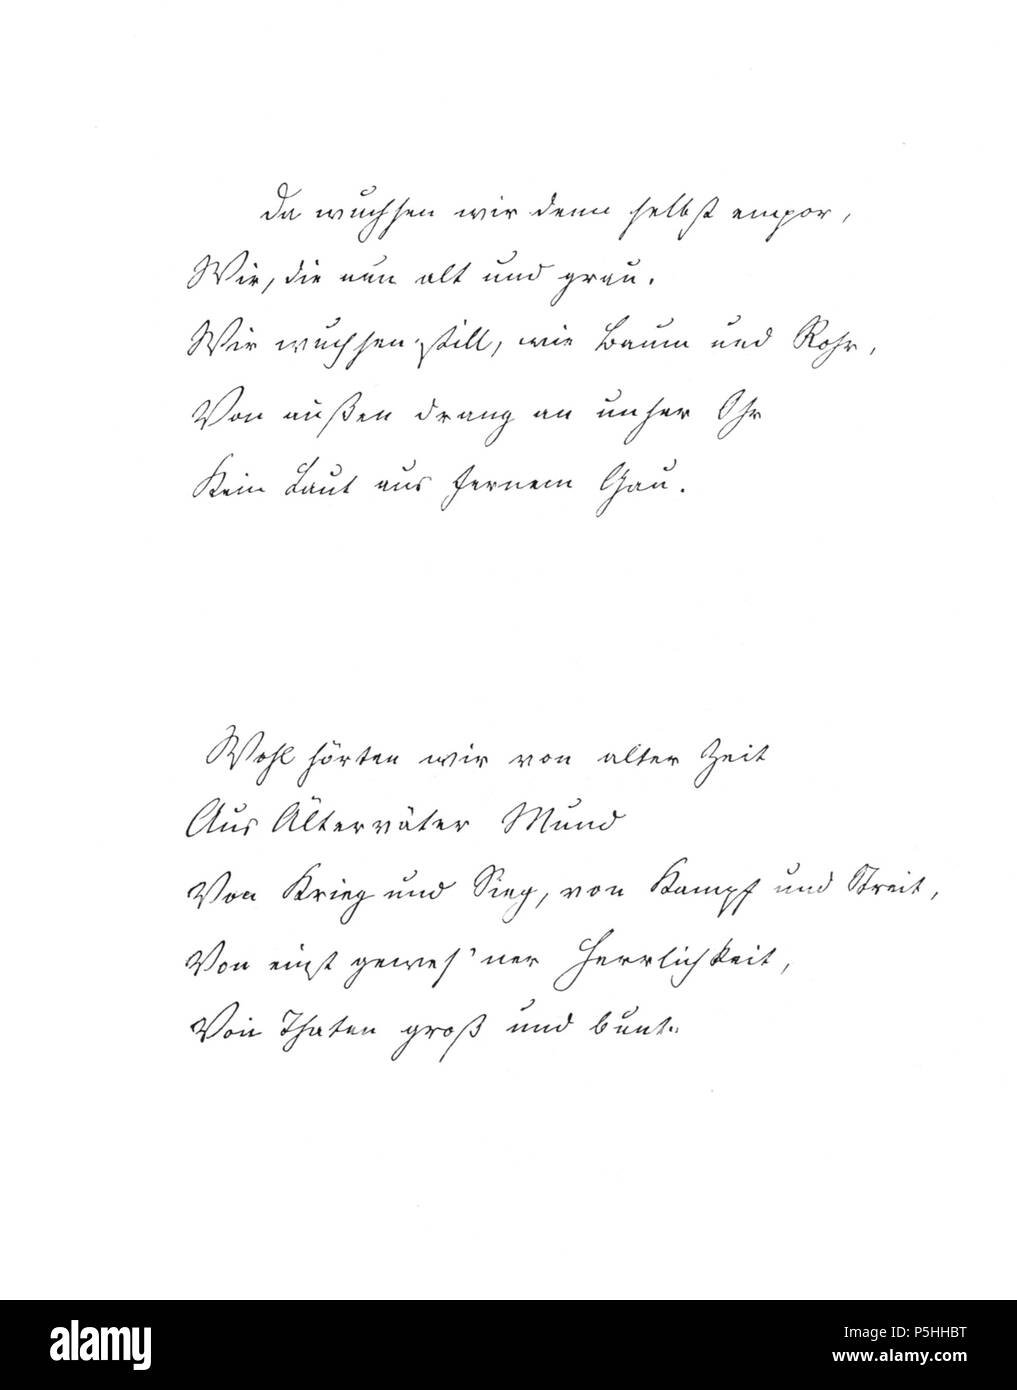 Da wuchsen wir denn selbst empor,
Wir, die nun alt und grau.
Wir wuchsen still, wie Baum und Rohr,
Von außen drang an unser Ohr
Kein Laut aus fernem Gau.
Wohl hörten wir von alter Zeit
Aus Ältervater Mund
Von Krieg und Sieg, von Kampf und Streit,
Von einst gewes'ner Herrlichkeit,
Von Thaten groß und bunt.
alamy
Image ID: P5HHBT
www.alamy.com